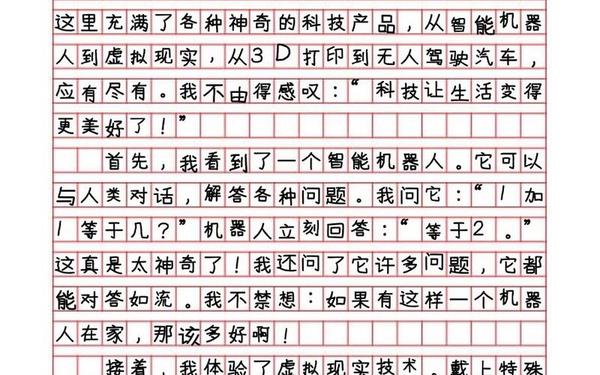 这里充满了各种神奇的科技产品，从智能机器
人到虚拟现实，从3D打印到无人驾驶汽车，
应有尽有。我不由得感叹：“科技让生活变得
更美好了！”
首先，我看到了一个智能机器人。它可以
与人类对话，解答各种问题。我问它：“1加
1等于几？”机器人立刻回答：“等于2。”
这真是太神奇了！我还问了它许多问题，它都
能对答如流。我不禁想：如果有这样一个机器
人在家，那该多好啊！
接着，我体验了虚拟现实技术。戴上特殊